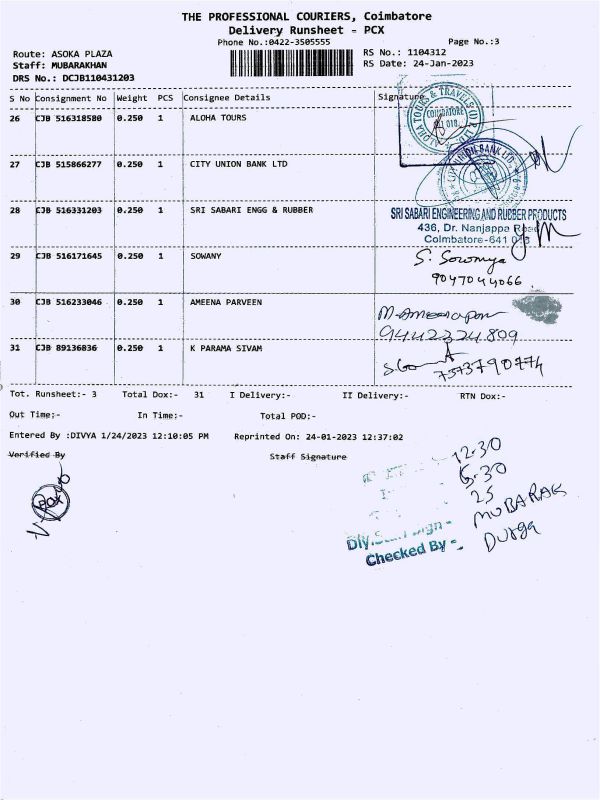 THE PROFESSIONAL COURIERS, Coimbatore
Delivery Runsheet - PCX
Phone No.:0422-3505555
Page No.:3
Route: ASOKA PLAZA
RS No.: 1104312
Staff: MUBARAKHAN
RS Date: 24-Jan-2023
DRS No.: DCJB110431203
S No Consignment No Weight PCS Consignee Details Signature
26 CJB 516318580 0.250 1 ALOHA TOURS
ALOHA TOURS & TRAVELS (I) P LTD
COIMBATORE
641 018
27 CJB 515866277 0.250 1 CITY UNION BANK LTD
28 CJB 516331203 0.250 1 SRI SABARI ENGG & RUBBER
SRI SABARI ENGINEERING AND RUBBER PRODUCTS
436, Dr. Nanjappa Road
Coimbatore-641 018
29 CJB 516171645 0.250 1 SOWANY
S. Sowmya
9047044066
30 CJB 516233046 0.250 1 AMEENA PARVEEN
9442324809
31 CJB 89136836 0.250 1 K PARAMA SIVAM
7373790774
Tot. Runsheet:- 3 Total Dox:- 31 I Delivery:- II Delivery:- RTN Dox:-
Out Time:- In Time:- Total POD:-
Entered By :DIVYA 1/24/2023 12:10:05 PM Reprinted On: 24-01-2023 12:37:02
Verified By Staff Signature
12.30
6.30
25
MUBARAK
Checked By - Durga